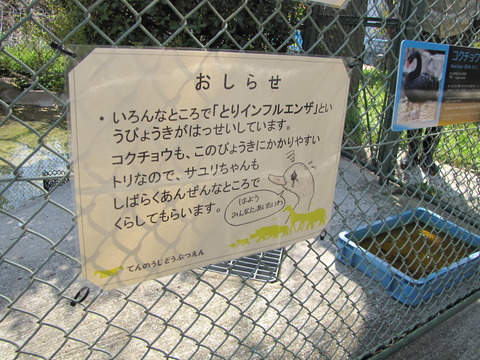 おしらせ
・いろんなところで「とりインフルエンザ」とい
うびょうきがはっせいしています。
コクチョウも、このびょうきにかかりやすい
トリなので、サユリちゃんも
しばらくあんぜんなところで
くらしてもらいます。
はよう
みんなにあいたいわ
てんのうじどうぶつえん
コクチョウ